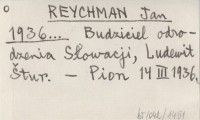 REYCHMAN Jan
1936... Budziciel odro-
dzenia Słowacji, Ludewit
Štur. – Pion 14 III 1936.